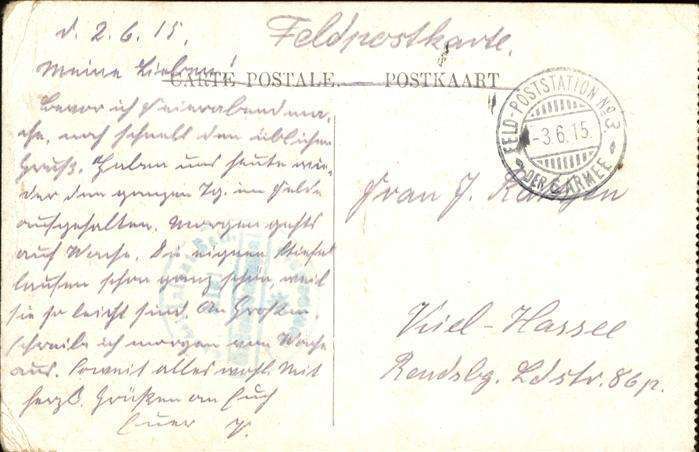 d. 2.6.15.
Feldpostkarte.
Meine Lieben!
CARTE POSTALE. POSTKAART
Bevor ich Feierabend ma-
che, noch schnell den üblichen
Gruß. Haben uns heute wie-
der den ganzen Tg. im Felde
aufgehalten. Morgen gehts
auf Wache. Die eignen Stiefel
laufen schon ganz schön, weil
sie so leicht sind. An
schreibe ich morgen von Wache
aus. Soweit alles wohl. Mit
herzl. Grüßen an Euch
Euer
FELD-POSTSTATION No 3
-3.6.15.
DER 6. ARMEE
Frau J.
Kiel-Hassee
Rendsbg. Ldstr. 86p.